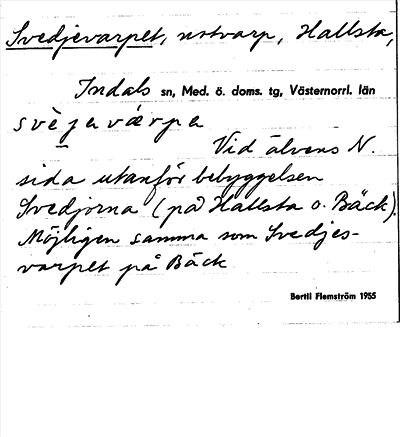 Svedjevarpet, notvarp, Hallsta,
Indals sn, Med. ö. doms. tg, Västernorrl. län
svèjavárpa
Vid älvens N.
sida utanför bebyggelsen
Svedjorna (på Hallsta o. Bäck).
Möjligen samma som Svedjes-
varpet på Bäck
Bertil Flemström 1955